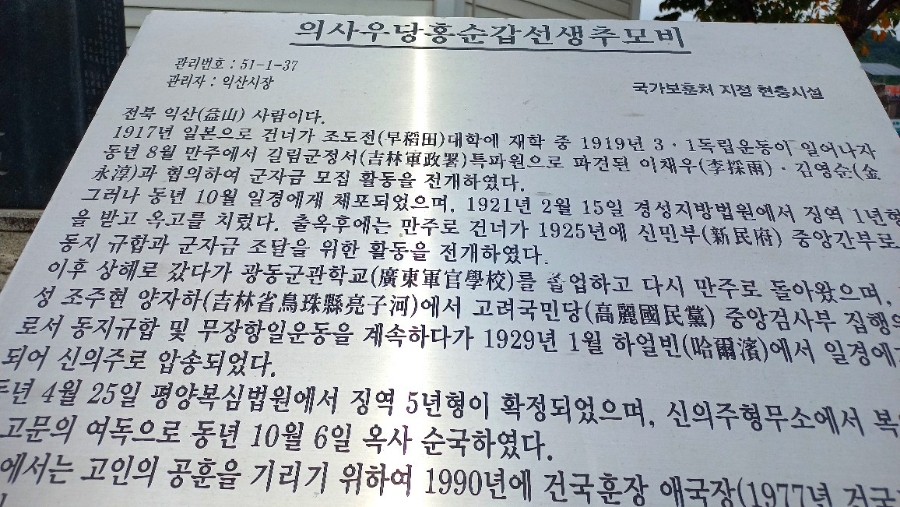 의사우당홍순갑선생추모비
관리번호 : 51-1-37
관리자 : 익산시장
국가보훈처 지정 현충시설
전북 익산(益山) 사람이다.
1917년 일본으로 건너가 조도전(早稻田)대학에 재학 중 1919년 3·1독립운동이 일어나자
동년 8월 만주에서 길림군정서(吉林軍政署)특파원으로 파견된 이채우(李採雨)·김영순(金
永淳)과 협의하여 군자금 모집 활동을 전개하였다.
그러나 동년 10월 일경에게 체포되었으며, 1921년 2월 15일 경성지방법원에서 징역 1년형
을 받고 옥고를 치렀다. 출옥후에는 만주로 건너가 1925년에 신민부(新民府) 중앙간부로
동지 규합과 군자금 조달을 위한 활동을 전개하였다.
이후 상해로 갔다가 광동군관학교(廣東軍官學校)를 졸업하고 다시 만주로 돌아왔으며,
성 조주현 양자하(吉林省鳥珠縣亮子河)에서 고려국민당(高麗國民黨) 중앙검사부 집행의
로서 동지규합 및 무장항일운동을 계속하다가 1929년 1월 하얼빈(哈爾濱)에서 일경에
되어 신의주로 압송되었다.
동년 4월 25일 평양복심법원에서 징역 5년형이 확정되었으며, 신의주형무소에서 복
고문의 여독으로 동년 10월 6일 옥사 순국하였다.
에서는 고인의 공훈을 기리기 위하여 1990년에 건국훈장 애국장(1977년 건국